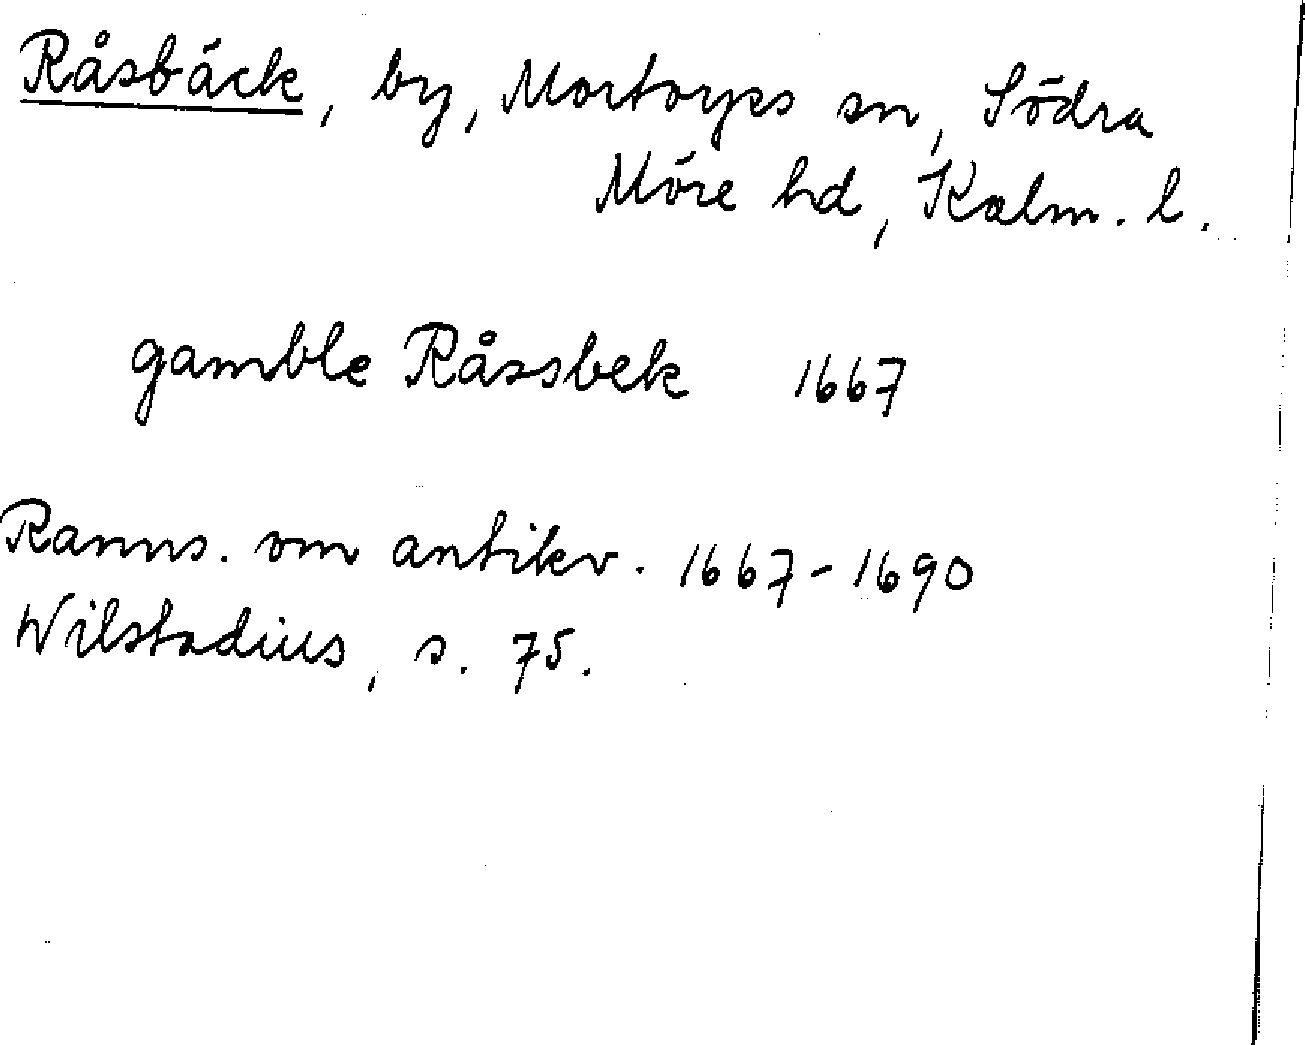 Råsbäck, by, Mortorps sn, Södra
Möre hd, Kalm. l.
gamble Råssbek 1667
Ranns. om antikv. 1667-1690
Wilstadius, s. 75.